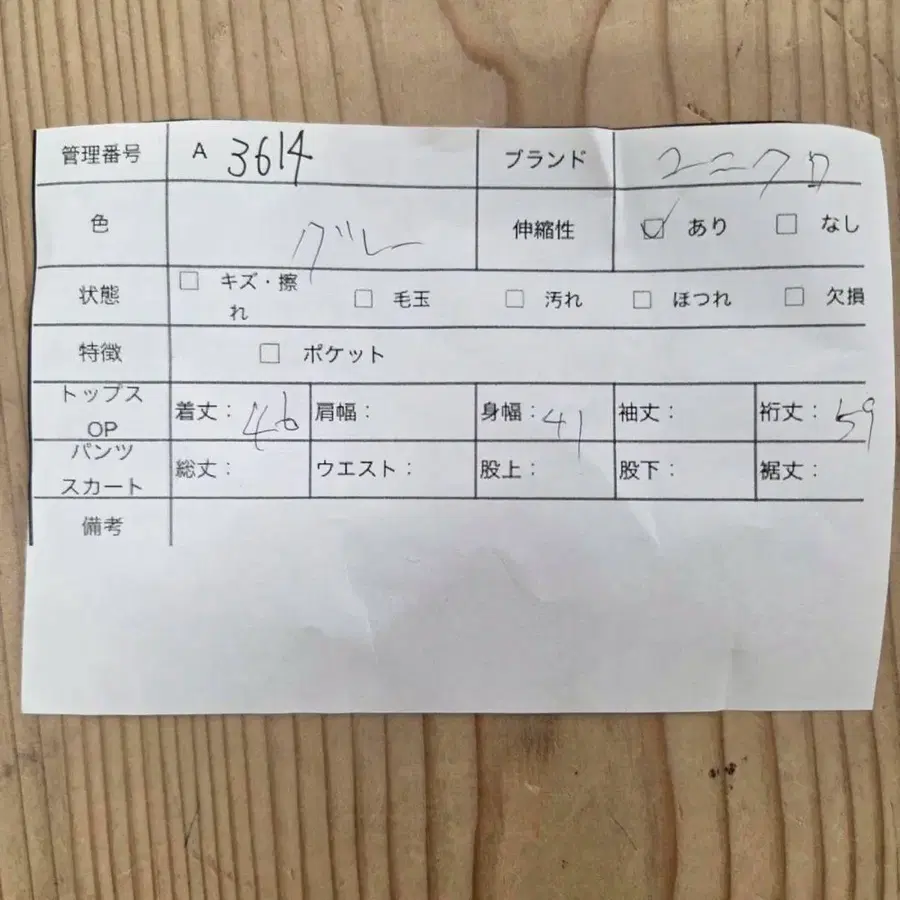 管理番号 A 3614 ブランド ユニクロ
色 グレー 伸縮性 ☑ あり ☐ なし
状態 ☐ キズ・擦れ ☐ 毛玉 ☐ 汚れ ☐ ほつれ ☐ 欠損
特徴 ☐ ポケット
トップス OP 着丈：46 肩幅： 身幅：41 袖丈： 裄丈：59
パンツ スカート 総丈： ウエスト： 股上： 股下： 裾丈：
備考